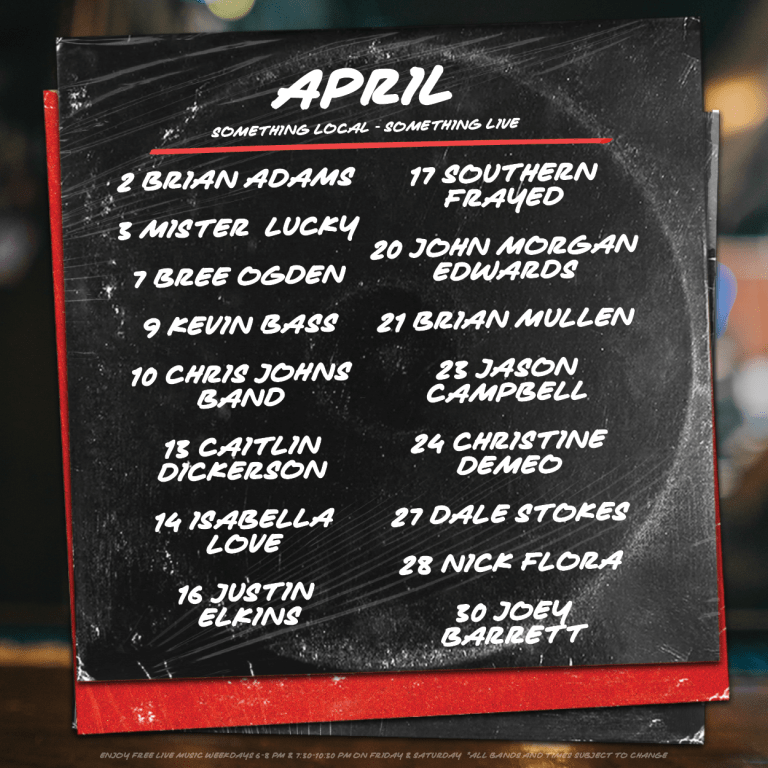 APRIL
SOMETHING LOCAL - SOMETHING LIVE
2 BRIAN ADAMS
3 MISTER LUCKY
7 BREE OGDEN
9 KEVIN BASS
10 CHRIS JOHNS
BAND
13 CAITLIN
DICKERSON
14 ISABELLA
LOVE
16 JUSTIN
ELKINS
17 SOUTHERN
FRAYED
20 JOHN MORGAN
EDWARDS
21 BRIAN MULLEN
23 JASON
CAMPBELL
24 CHRISTINE
DEMEO
27 DALE STOKES
28 NICK FLORA
30 JOEY
BARRETT
ENJOY FREE LIVE MUSIC WEEKDAYS 6-8 PM & 7:30-10:30 PM ON FRIDAY & SATURDAY *ALL BANDS AND TIMES SUBJECT TO CHANGE